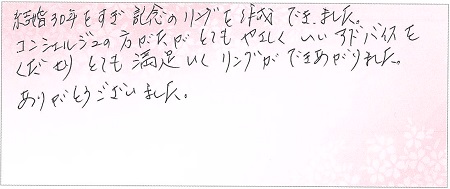 結婚30年をすぎ記念のリングを作成できました。
コンシェルジュの方がたがとてもやさしくいいアドバイスを
くださりとても満足いくリングができあがりました。
ありがとうございました。